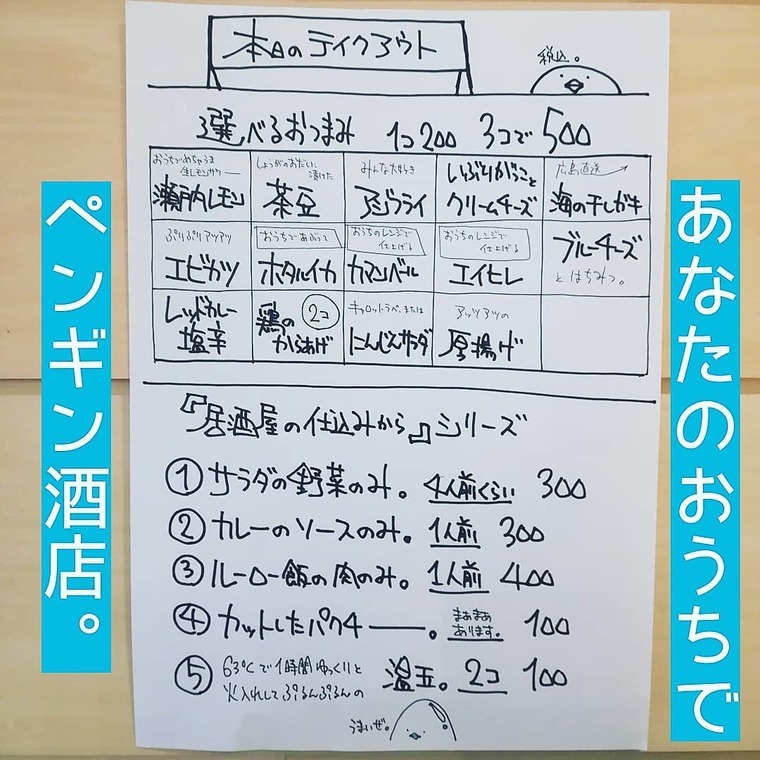 あなたのおうちで
ペンギン酒店。
本日のテイクアウト
税込。
選べるおつまみ 1コ200 3コで500
おうちでめちゃうま
生レモンサワー
瀬戸内レモン
しょうがのおだしに
漬けた
茶豆
みんな大好き
アジフライ
いぶりがっこと
クリームチーズ
広島直送
海の干しガキ
ぷりぷりアツアツ
エビカツ
おうちであぶって
ホタルイカ
おうちのレンジで
仕上げる
カマンベール
おうちのレンジで
仕上げる
エイヒレ
ブルーチーズ
とはちみつ。
レッドカレー
塩辛
鶏の 2コ
からあげ
キャロットラペ、または
にんじんサラダ
アッツアツの
厚揚げ
『居酒屋の仕込みから』シリーズ
① サラダの野菜のみ。 4人前くらい 300
② カレーのソースのみ。 1人前 300
③ ルーロー飯の肉のみ。 1人前 400
④ カットしたパクチー。 まあまあ あります。 100
⑤ 63℃で1時間ゆっくりと
火入れしてぷるんぷるんの 温玉。 2コ 100
うまいぜ。